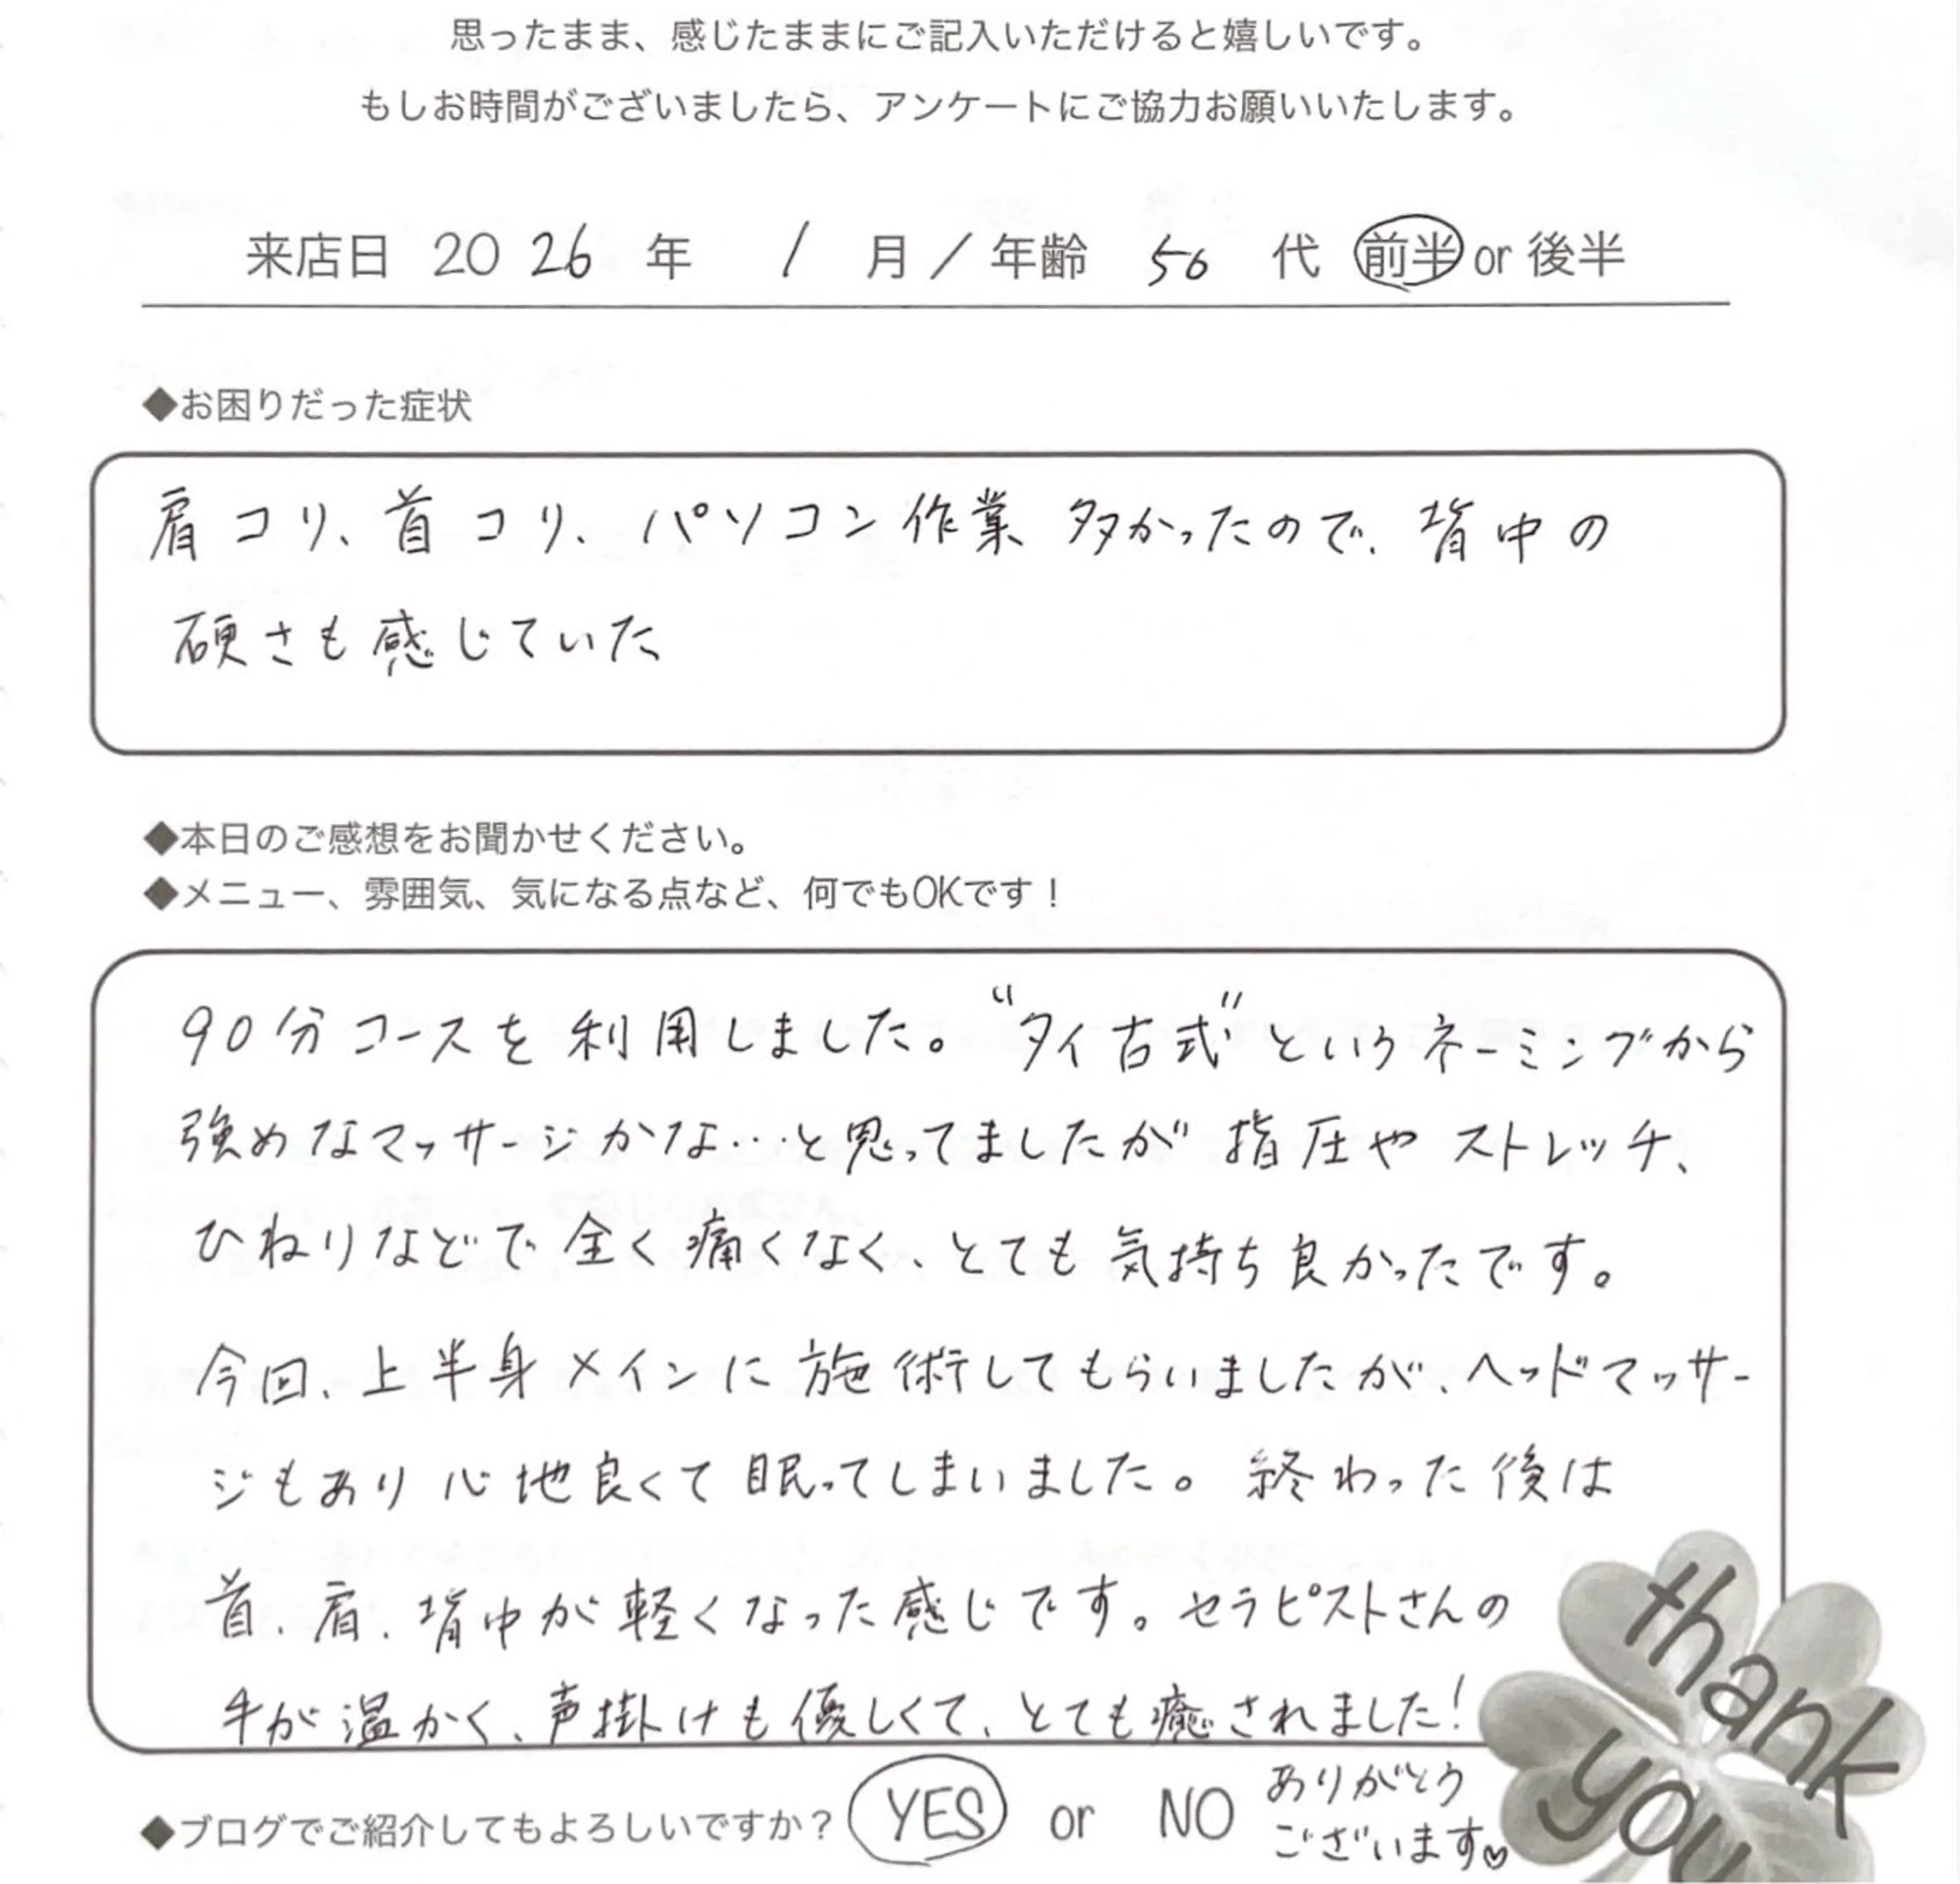 思ったまま、感じたままにご記入いただけると嬉しいです。
もしお時間がございましたら、アンケートにご協力お願いいたします。
来店日 2026 年 1 月 / 年齢 50 代 前半 or 後半
◆お困りだった症状
肩コリ、首コリ、パソコン作業 多かったので、背中の
硬さも感じていた
◆本日のご感想をお聞かせください。
◆メニュー、雰囲気、気になる点など、何でもOKです！
90分コースを利用しました。"タイ古式"というネーミングから
強めなマッサージかな…と思ってましたが 指圧や ストレッチ、
ひねりなどで 全く痛くなく、とても 気持ち良かったです。
今回、上半身メインに 施術してもらいましたが、ヘッドマッサー
ジもあり 心地良くて 眠ってしまいました。終わった後は
首、肩、背中が 軽くなった感じです。セラピストさんの
手が温かく、声掛けも優しくて、とても癒されました！
◆ブログでご紹介してもよろしいですか？ YES or NO
ありがとう
ございます♡
thank
you